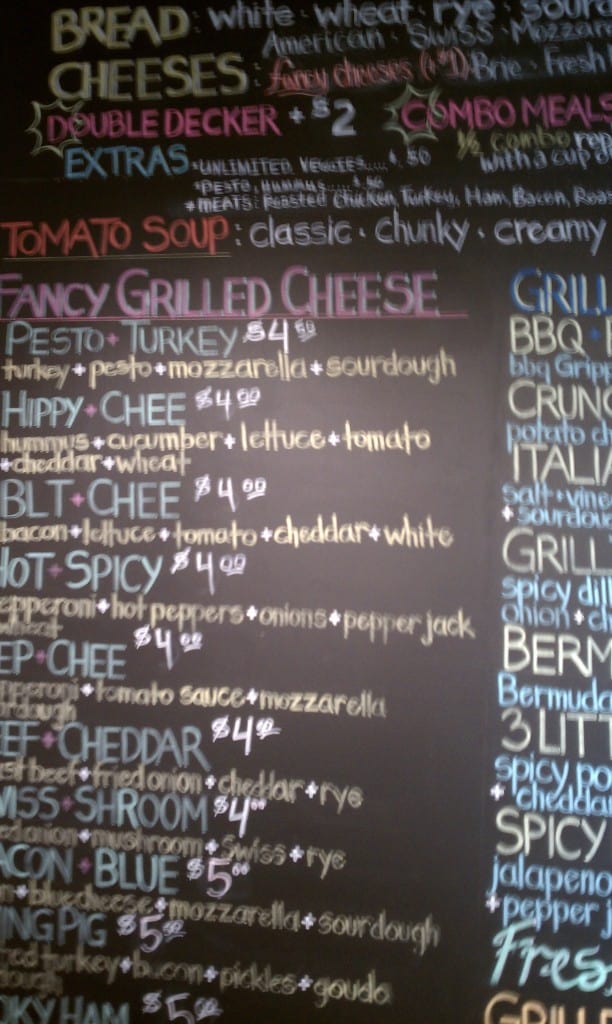 BREAD: white · wheat · rye · sourd
American · Swiss · Mozzare
CHEESES: fancy cheeses (+$1) Brie · Fresh
DOUBLE DECKER + $2 COMBO MEALS
½ combo rep
EXTRAS · UNLIMITED VEGGIES.... $.50 with a cup o
· PESTO, HUMMUS..... $.50
+ MEATS: Roasted Chicken, Turkey, Ham, Bacon, Roa
TOMATO SOUP: classic · chunky · creamy
FANCY GRILLED CHEESE
GRILL
PESTO + TURKEY $4.50
turkey + pesto + mozzarella + sourdough
HIPPY + CHEE $4.00
hummus + cucumber + lettuce + tomato
+ cheddar + wheat
BLT + CHEE $4.00
bacon + lettuce + tomato + cheddar + white
HOT + SPICY $4.00
epperoni + hot peppers + onions + pepper jack
wheat
EP + CHEE $4.00
pperoni + tomato sauce + mozzarella
rdough
EEF + CHEDDAR $4.00
st beef + fried onion + cheddar + rye
WISS + SHROOM $4.00
ed onion + mushroom + Swiss + rye
ACON + BLUE $5.00
n + blue cheese + mozzarella + sourdough
ING PIG $5.00
ed turkey + bacon + pickles + gouda
dough
OKY HAM $5.00
BBQ +
bbq Gripp
CRUNC
potato ch
ITALIA
salt + vine
+ sourdou
GRILL
spicy dill
onion + ch
BERM
Bermuda
3 LITT
spicy po
+ cheddar
SPICY
jalapeno
+ pepper j
Fres
GRILL